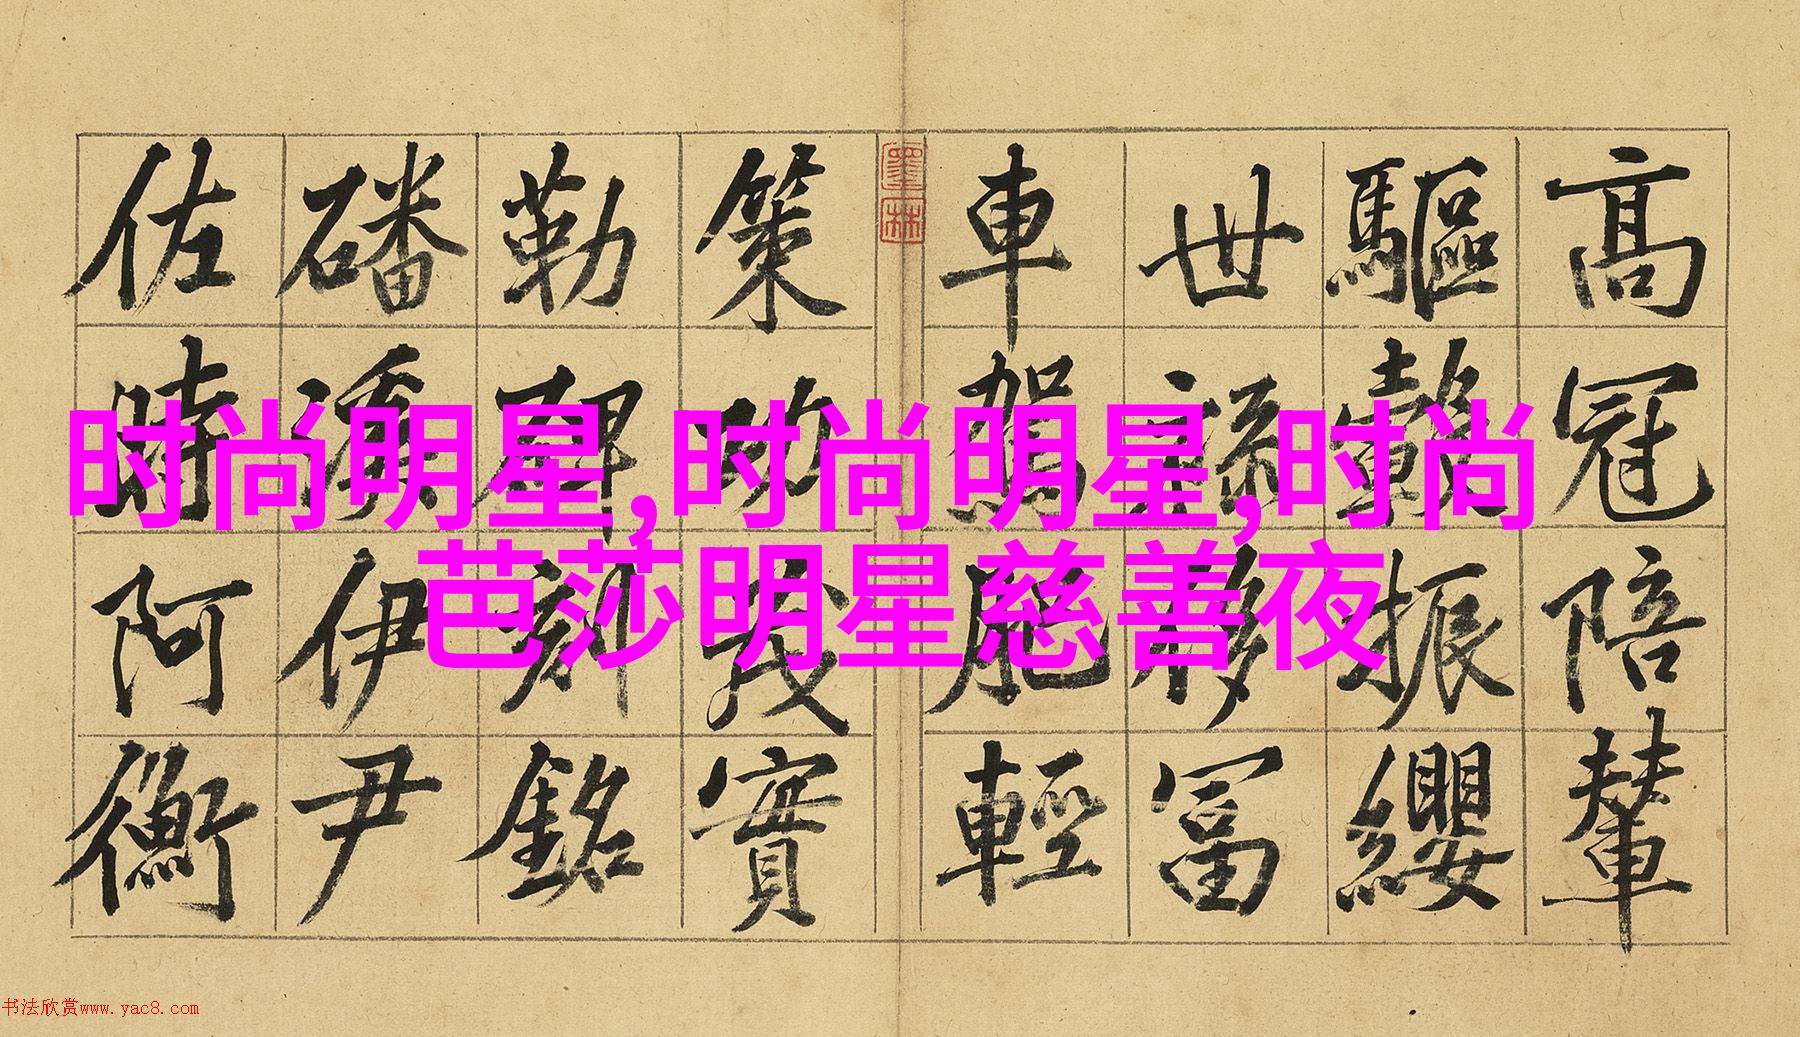 时尚明星,时尚明星,时尚
芭莎明星慈善夜
高冠陪輦
驅轂振纓
世祿侈富
車駕肥輕
墨林
策功茂實
勒碑刻銘
磻溪伊尹
佐時阿衡
书法欣赏www.yac8.com